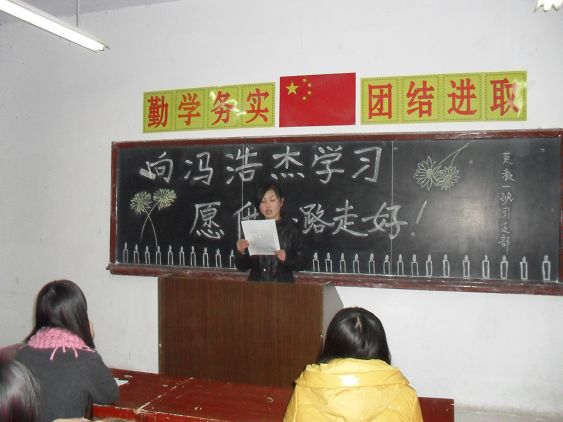 勤学务实
团结进取
向冯浩杰学习
愿 路走好!
英教一班团支部